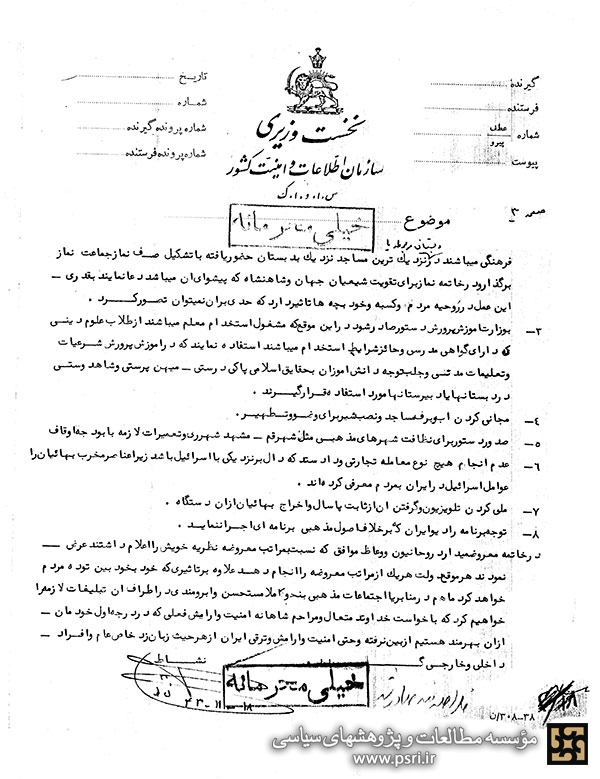 گیرنده
فرستنده
شماره عطف پیرو
پیوست
تاریخ
شماره
شماره پرونده گیرنده
شماره پرونده فرستنده
نخست وزیری
سازمان اطلاعات و امنیت کشور
س.ا.و.ا.ک
صفحه ۳
موضوع
خیلی محرمانه
فرهنگی میباشند در نزدیك ترین مساجد نزدیك بدبستان حضور یافته با تشکیل صف نماز جماعت نماز
برگذار و در خاتمه نماز برای تقویت شیعیان جهان و شاهنشاه که پیشوای آن میباشد دعا نمایند بقدری ـ
این عمل در روحیه مردم و کسبه و خود بچه ها تاثیر دارد که حدی بر آن نمیتوان تصور کرد .
۳ـ بوزارت آموزش پرورش دستور صادر شود در این موقع که مشغول استخدام معلم میباشند از طلاب علوم دینی
که دارای گواهی مدرسی و حائز شرایط استخدام میباشند استفاده نمایند که در آموزش پرورش شرعیات
و تعلیمات مدنی و جلب توجه دانش آموزان بحقایق اسلامی پاکی درستی ـ میهن پرستی و شاهدوستی
در دبستانها یا دبیرستانها مورد استفاده قرار گیرند .
۴ـ مجانی کردن آب و برق مساجد و نصب شیر برای وضو و تطهیر .
۵ـ صدور دستور برای نظافت شهرهای مذهبی مثل شهر قم ـ مشهد شهرری و تعمیرات لازمه با بودجه اوقاف
۶ـ عدم انجام هیچ نوع معامله تجارتی و داد و ستد که دال بر نزدیکی با اسرائیل باشد زیرا عناصر مخرب بهائیان را
عوامل اسرائیل در ایران بمردم معرفی کرده اند .
۷ـ ملی کردن تلویزیون و گرفتن آن از ثابت پاسال و اخراج بهائیان از آن دستگاه .
۸ـ توجه برنامه رادیو ایران که بر خلاف اصول مذهبی برنامه ای اجرا ننماید .
در خاتمه معروض میدارد روحانیون و وعاظ موافق که نسبت بمراتب معروضه نظریه خویش را اعلام داشتند عرض ـ
نمودند هر موقع دولت هر یك از مراتب معروضه را انجام دهد علاوه بر تاثیری که خود بخود بین توده مردم
خواهد کرد ما هم در منابر یا اجتماعات مذهبی بنحو کاملا مستحسن و آبرومندی در اطراف آن تبلیغات لازمه را
خواهیم کرد که با خواست خداوند متعال و مراحم شاهانه امنیت و آرامش فعلی که در درجه اول خودمان ـ
از آن بهره مند هستیم از بین نرفته و حتی امنیت و آرامش و ترقی ایران از هر حیث زبان زد خاص و عام و افراد ـ
داخلی و خارجی گردد
نشاط
خیلی محرمانه
۳۸ـ۳۰۸/ن
مؤسسه مطالعات و پژوهشهای سیاسی
www.psri.ir